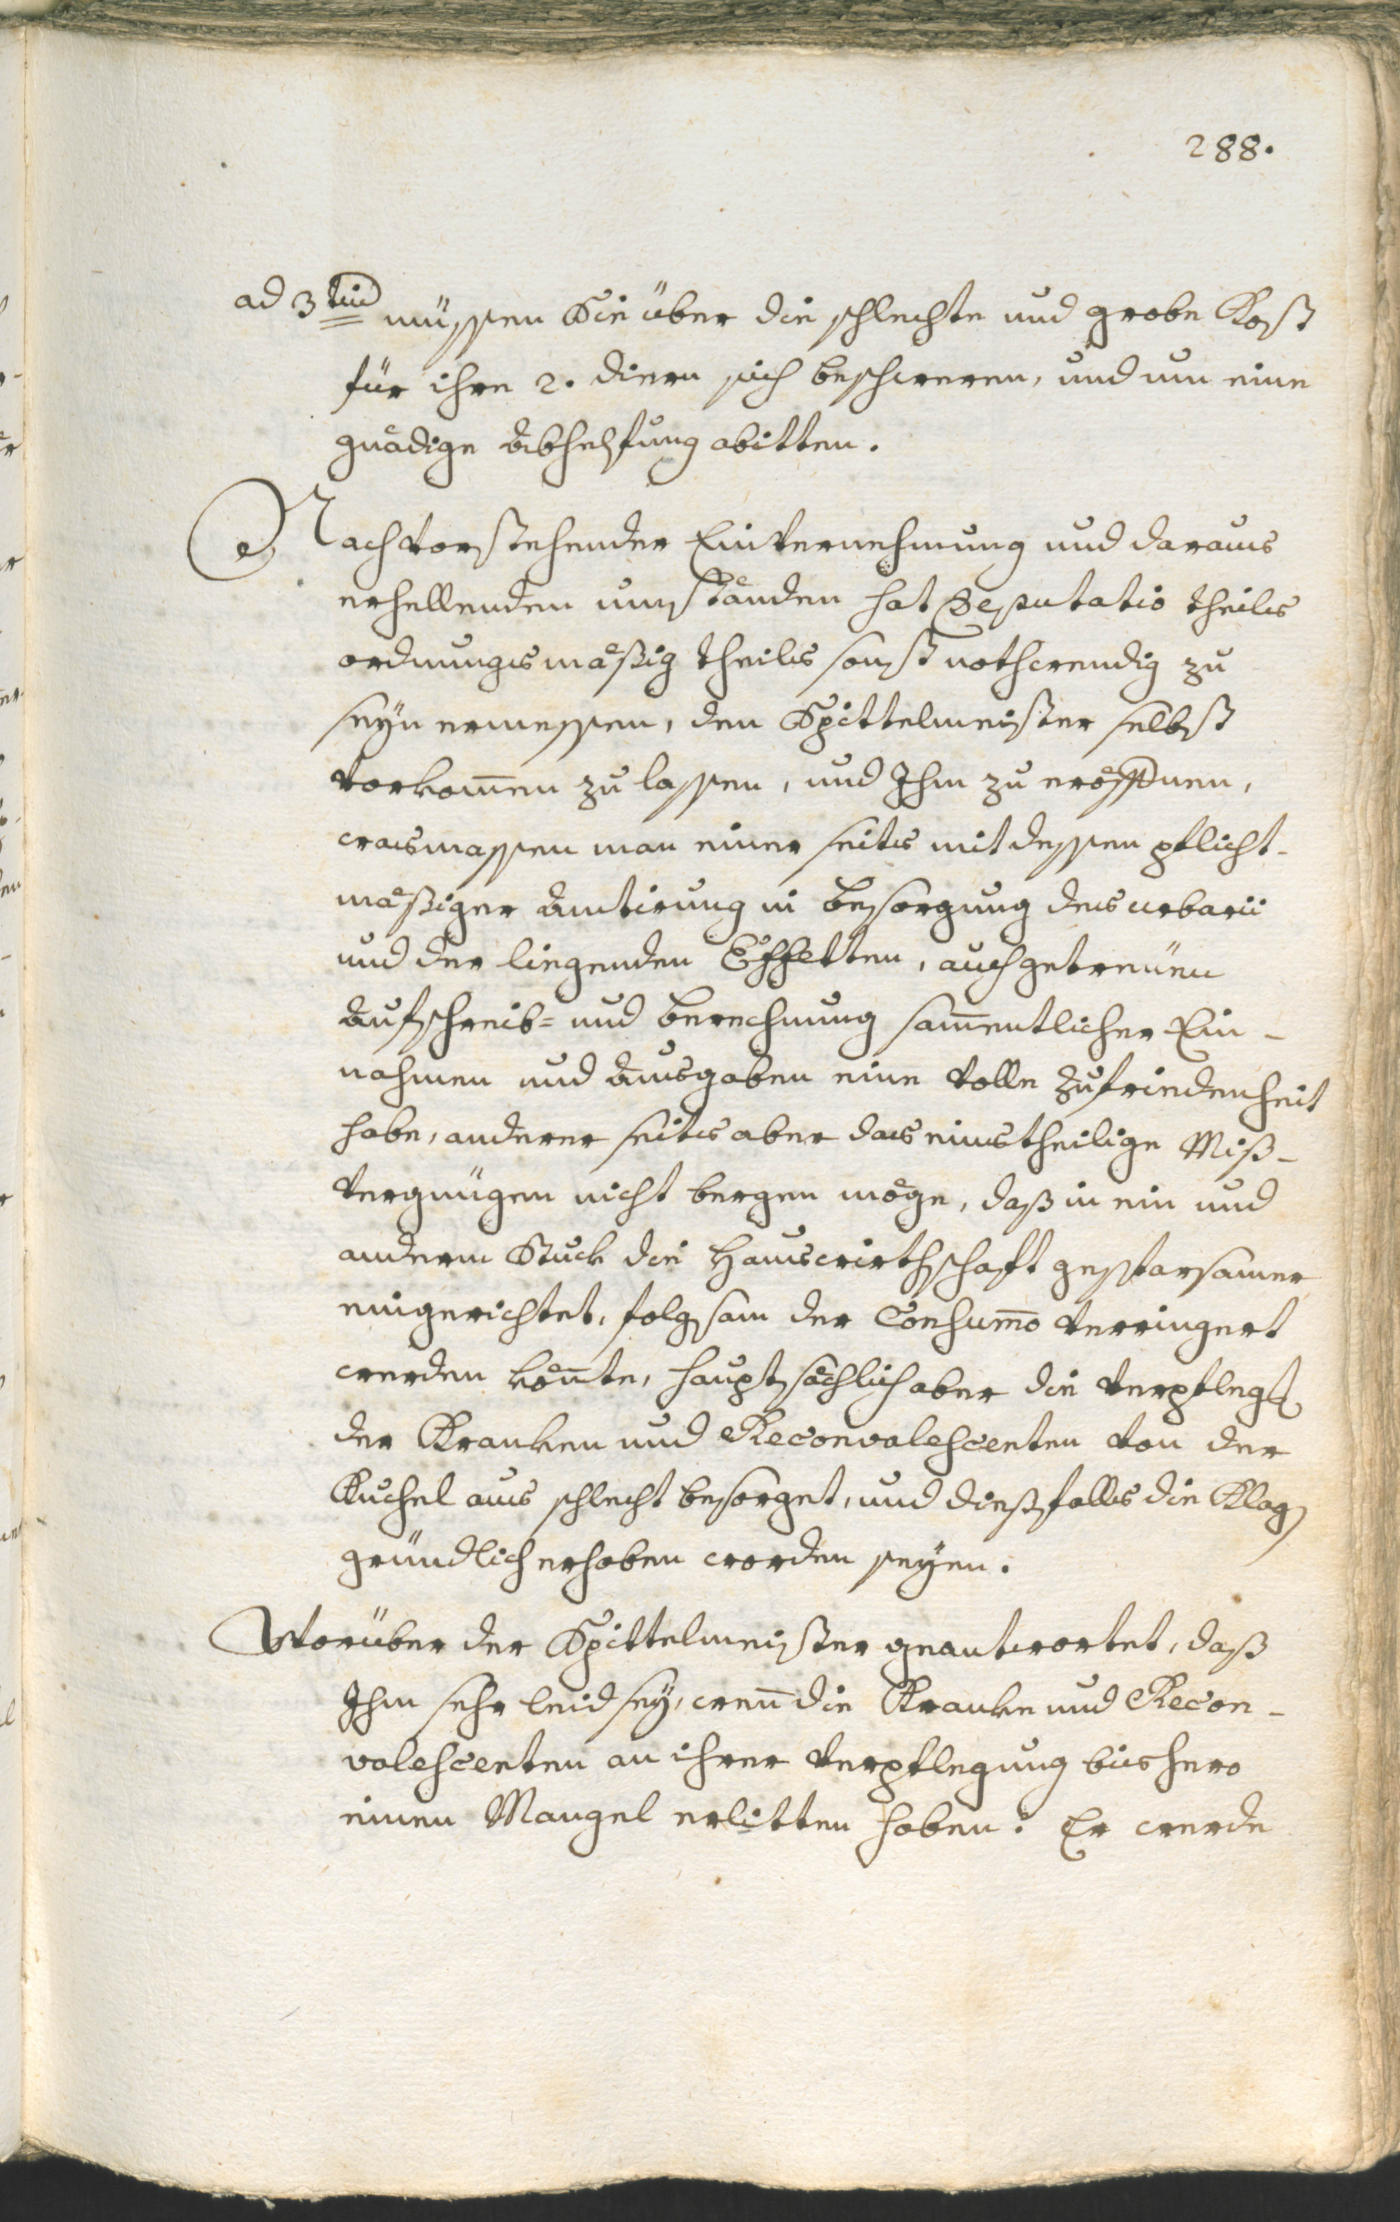 288.
ad 3tio müssen Sie über die schlechte und grobe Kost
für ihre 2. diern sich beschweren, und um eine
gnädige Abhelfung abitten.
Nach vorstehender Einvernehmung und daraus
erhellenden umständen hat Deputatio theils
ordnungsmäßig theils sonst nothwendig zu
seyn ermessen, den Spittelmeister selbst
vorkom̅en zu lassen, und Ihm zu eröffnen,
wasmassen man einer seits mit dessen pflicht-
mäßiger Amtirung in besorgung des urbarii
und der liegenden Effetten, auch getreuen
Aufschreib= und berechnung sam̅entlicher Ein-
nahmen und Ausgaben eine volle Zufriedenheit
habe, anderer seits aber das einstheilige Miß-
vergnügen nicht bergen möge, daß in ein und
anderm Stuck die Hauswirthschaft gesparsamer
eingerichtet, folgsam der Consum̅o verringert
werden kön̅te, hauptsächlich aber die verpflegg
der Kranken und Reconvalescenten von der
Kuchel aus schlecht besorget, und dießfalls die Klag
gründlich erhoben worden seyen.
Worüber der Spittelmeister geantwortet, daß
Ihm sehr leid sey, wen̅ die Kranke und Recon-
valescenten an ihrer verpflegung bishero
einen Mangel erlitten haben: Er werde